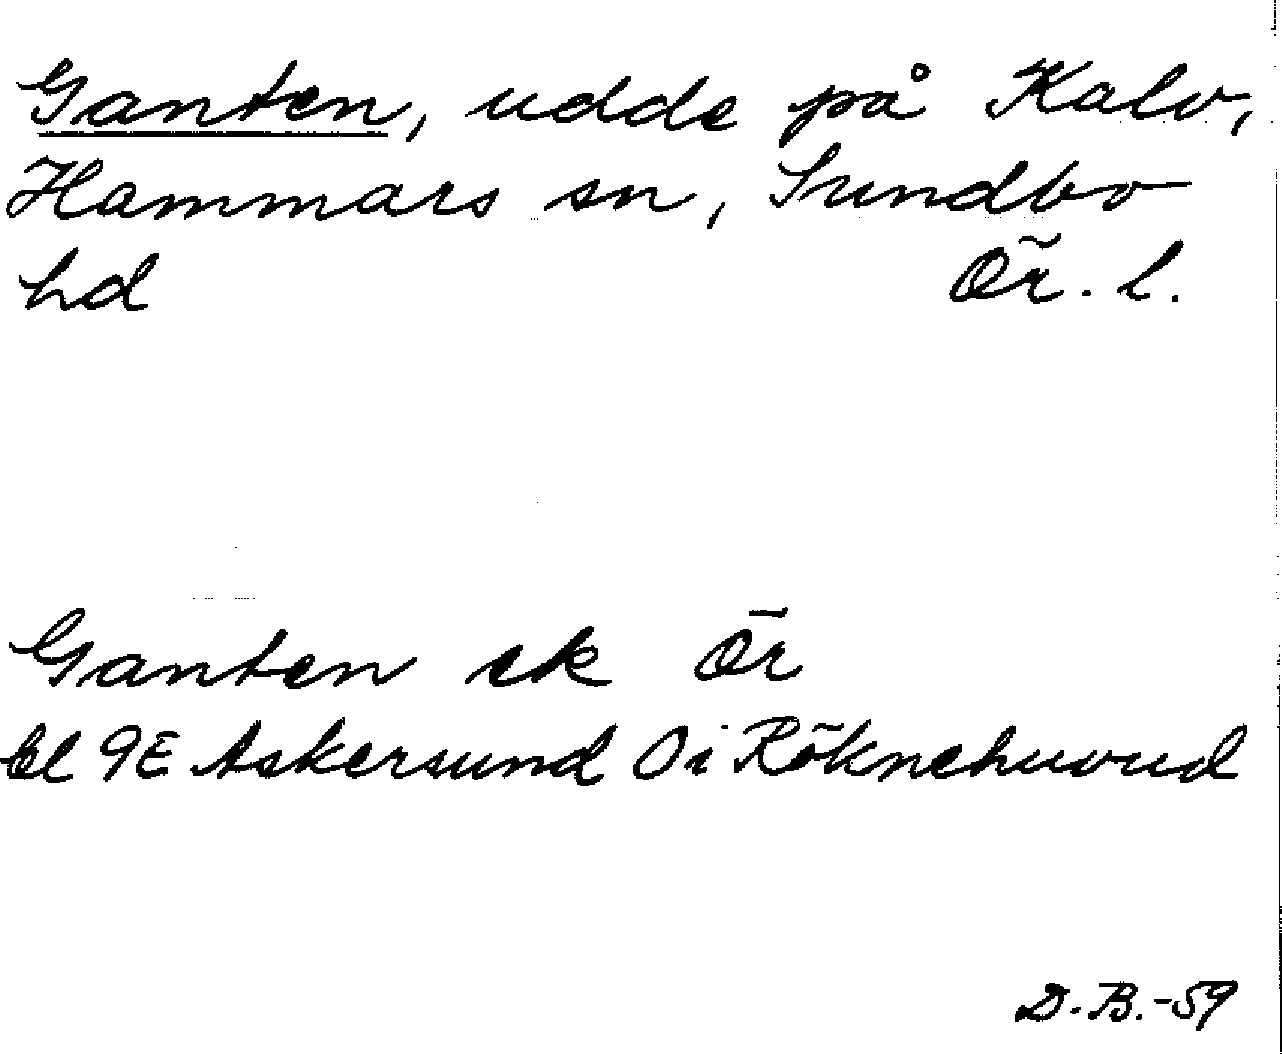 Ganten, udde på Kalv,
Hammars sn, Sundbo
hd Ör. l.
Ganten ek Ör
bl 9E Askersund Öi Röknehuvud
D.B.-59